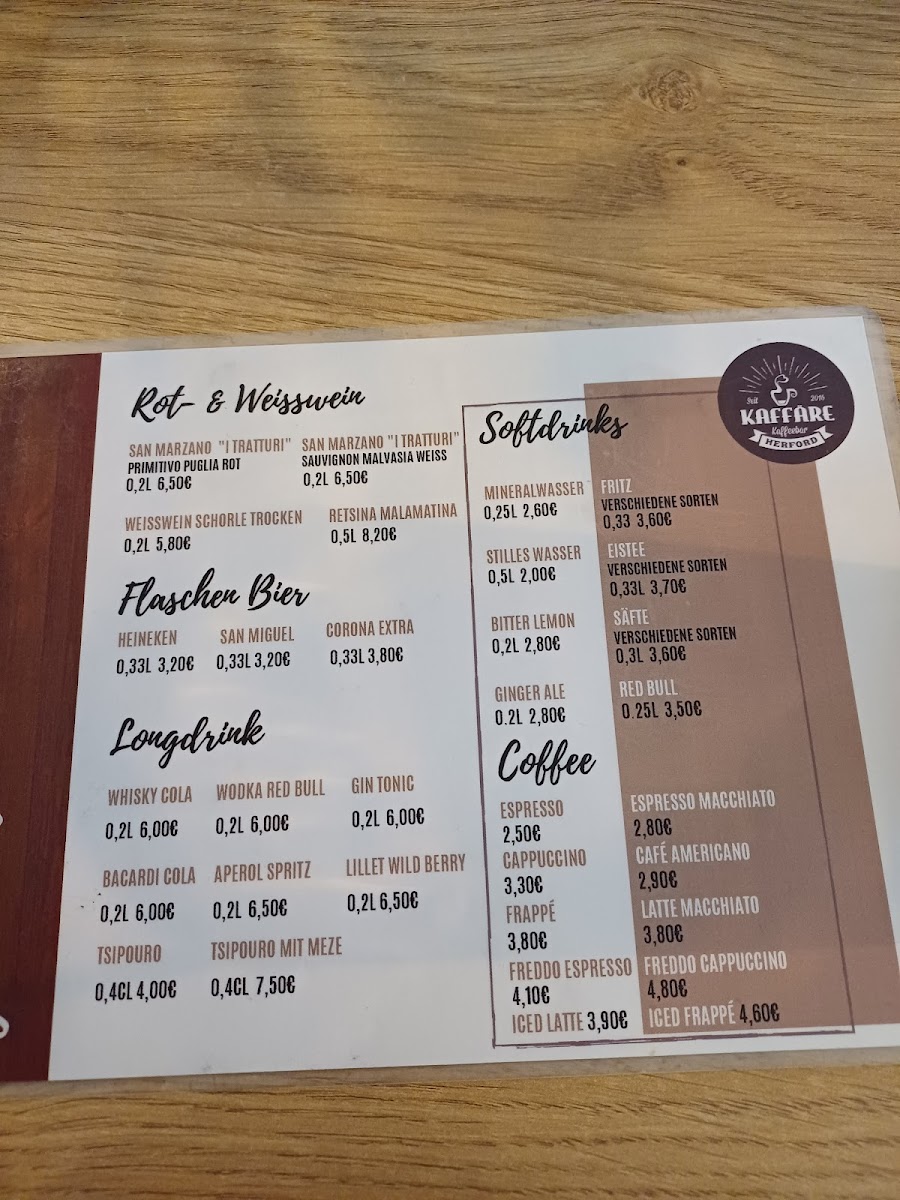 Rot- & Weisswein
SAN MARZANO "I TRATTURI"
PRIMITIVO PUGLIA ROT
0,2L 6,50€
SAN MARZANO "I TRATTURI"
SAUVIGNON MALVASIA WEISS
0,2L 6,50€
WEISSWEIN SCHORLE TROCKEN
0,2L 5,80€
RETSINA MALAMATINA
0,5L 8,20€
Flaschen Bier
HEINEKEN
0,33L 3,20€
SAN MIGUEL
0,33L 3,20€
CORONA EXTRA
0,33L 3,80€
Longdrink
WHISKY COLA
0,2L 6,00€
WODKA RED BULL
0,2L 6,00€
GIN TONIC
0,2L 6,00€
BACARDI COLA
0,2L 6,00€
APEROL SPRITZ
0,2L 6,50€
LILLET WILD BERRY
0,2L 6,50€
TSIPOURO
0,4CL 4,00€
TSIPOURO MIT MEZE
0,4CL 7,50€
Seit 2016
KAFFÄRE
Kaffeebar
HERFORD
Softdrinks
MINERALWASSER
0,25L 2,60€
FRITZ
VERSCHIEDENE SORTEN
0,33 3,60€
STILLES WASSER
0,5L 2,00€
EISTEE
VERSCHIEDENE SORTEN
0,33L 3,70€
BITTER LEMON
0,2L 2,80€
SÄFTE
VERSCHIEDENE SORTEN
0,3L 3,60€
GINGER ALE
0.2L 2,80€
RED BULL
0.25L 3,50€
Coffee
ESPRESSO
2,50€
ESPRESSO MACCHIATO
2,80€
CAPPUCCINO
3,30€
CAFÉ AMERICANO
2,90€
FRAPPÉ
3,80€
LATTE MACCHIATO
3,80€
FREDDO ESPRESSO
4,10€
FREDDO CAPPUCCINO
4,80€
ICED LATTE 3,90€
ICED FRAPPÉ 4,60€